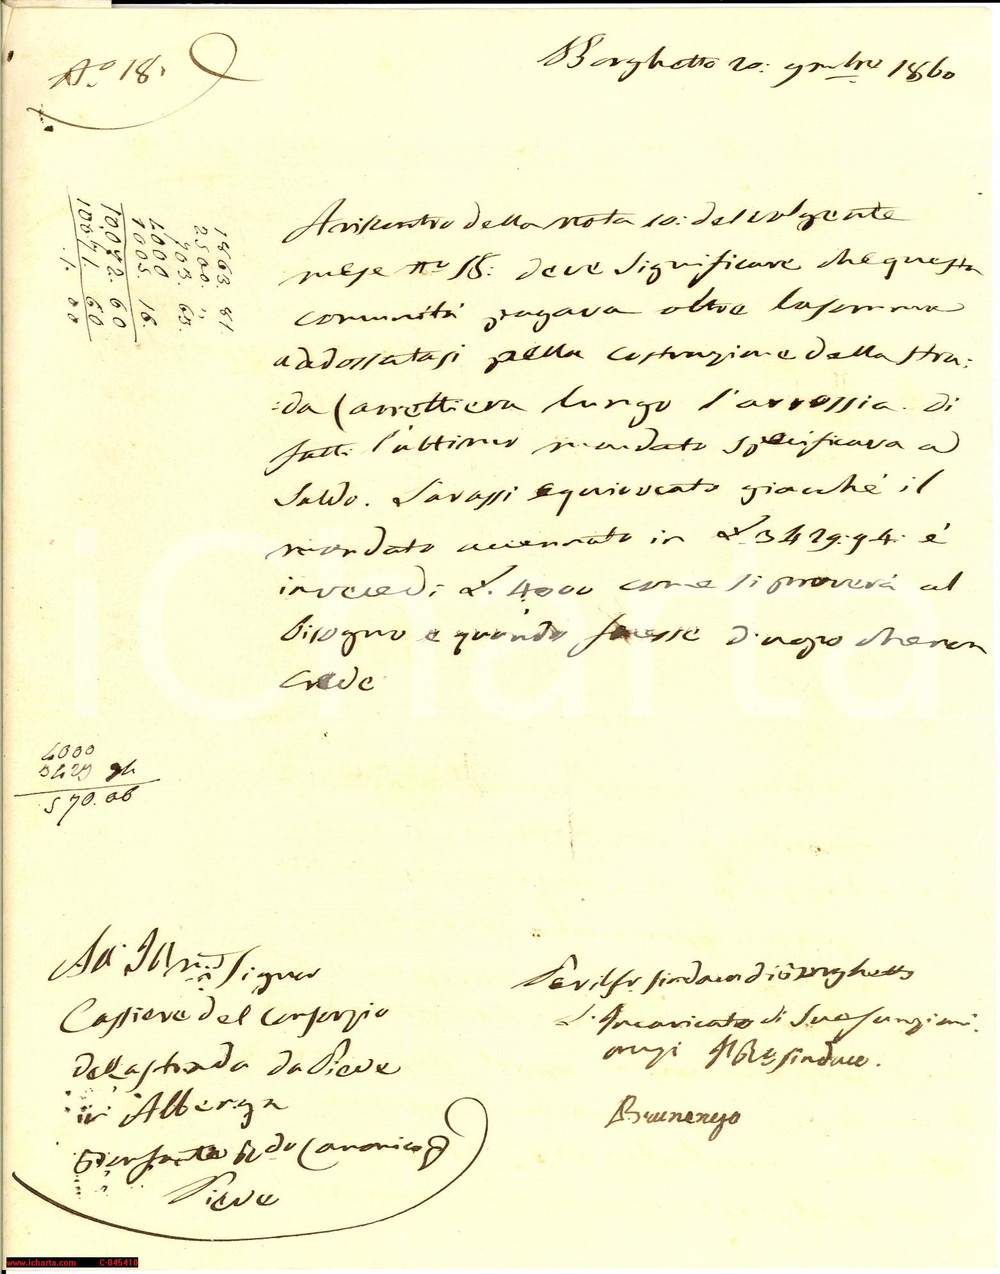 N.o 18.
Borghetto 20: 9mbre 1860
A riscontro della nota 10: del volgente
mese n.o 18: deve significare che questa
comunità pagava oltre la somma
addossatasi pella costruzione della stra:
:da Carrettiera lungo l'arrossia. Di
fatti l'ultimo mandato specificava a
Saldo. S'avassi equivocato giacché il
mandato accennato in L. 3429:94: é
invece di L. 4000 come si proverà al
bisogno e quando fosse d'uopo che non
crede
1863. 81
2500. "
903. 63.
4000
1005 16.
10072. 60
10071. 60
1. 00
4000
3429 94
570.06
All' Ill.mo Signor
Cassiere del consorzio
della strada da Pieve
in Albenga
Canonico
Pieve
Pel Sig.r Sindaco di Borghetto
L'Incaricato di Sue funzioni
Sindaco.
Brunengo
www.icharta.com C-045410
iCharta